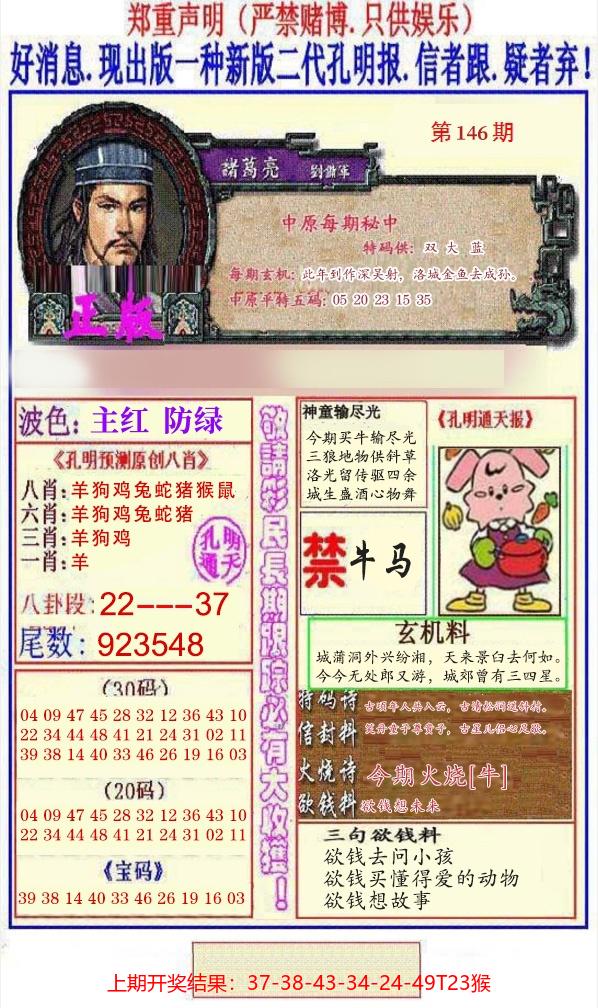 郑重声明（严禁赌博.只供娱乐）
好消息.现出版一种新版二代孔明报.信者跟.疑者弃！
第146期
諸葛亮 劉備軍
中原每期秘中
特码供：双 大 蓝
每期玄机：此年到作深吴射，洛城金鱼去成孙。
中原平特五码：05 20 23 15 35
正版
波色：主红 防绿
《孔明预测原创八肖》
八肖：羊狗鸡兔蛇猪猴鼠
六肖：羊狗鸡兔蛇猪
三肖：羊狗鸡
一肖：羊
孔明
通天
八卦段：22---37
尾数：923548
（30码）
04 09 47 45 28 32 12 36 43 10
22 34 44 48 41 21 24 31 02 11
39 38 14 40 33 46 26 19 16 03
（20码）
04 09 47 45 28 32 12 36 43 10
22 34 44 48 41 21 24 31 02 11
《宝码》
39 38 14 40 33 46 26 19 16 03
敬請彩民長期跟踪必有大收獲！
神童输尽光
今期买牛输尽光
三狼地物供斜草
洛光留传驱四余
城生蛊酒心物舞
《孔明通天报》
禁 牛马
玄机料
城蒲洞外兴纷湘，天来景臼去何如。
今今无处郎又游，城郊曾有三四星。
特码诗
信封料
火烧诗 今期火烧[牛]
欲钱料 欲钱想未来
三句欲钱料
欲钱去问小孩
欲钱买懂得爱的动物
欲钱想故事
上期开奖结果：37-38-43-34-24-49T23猴